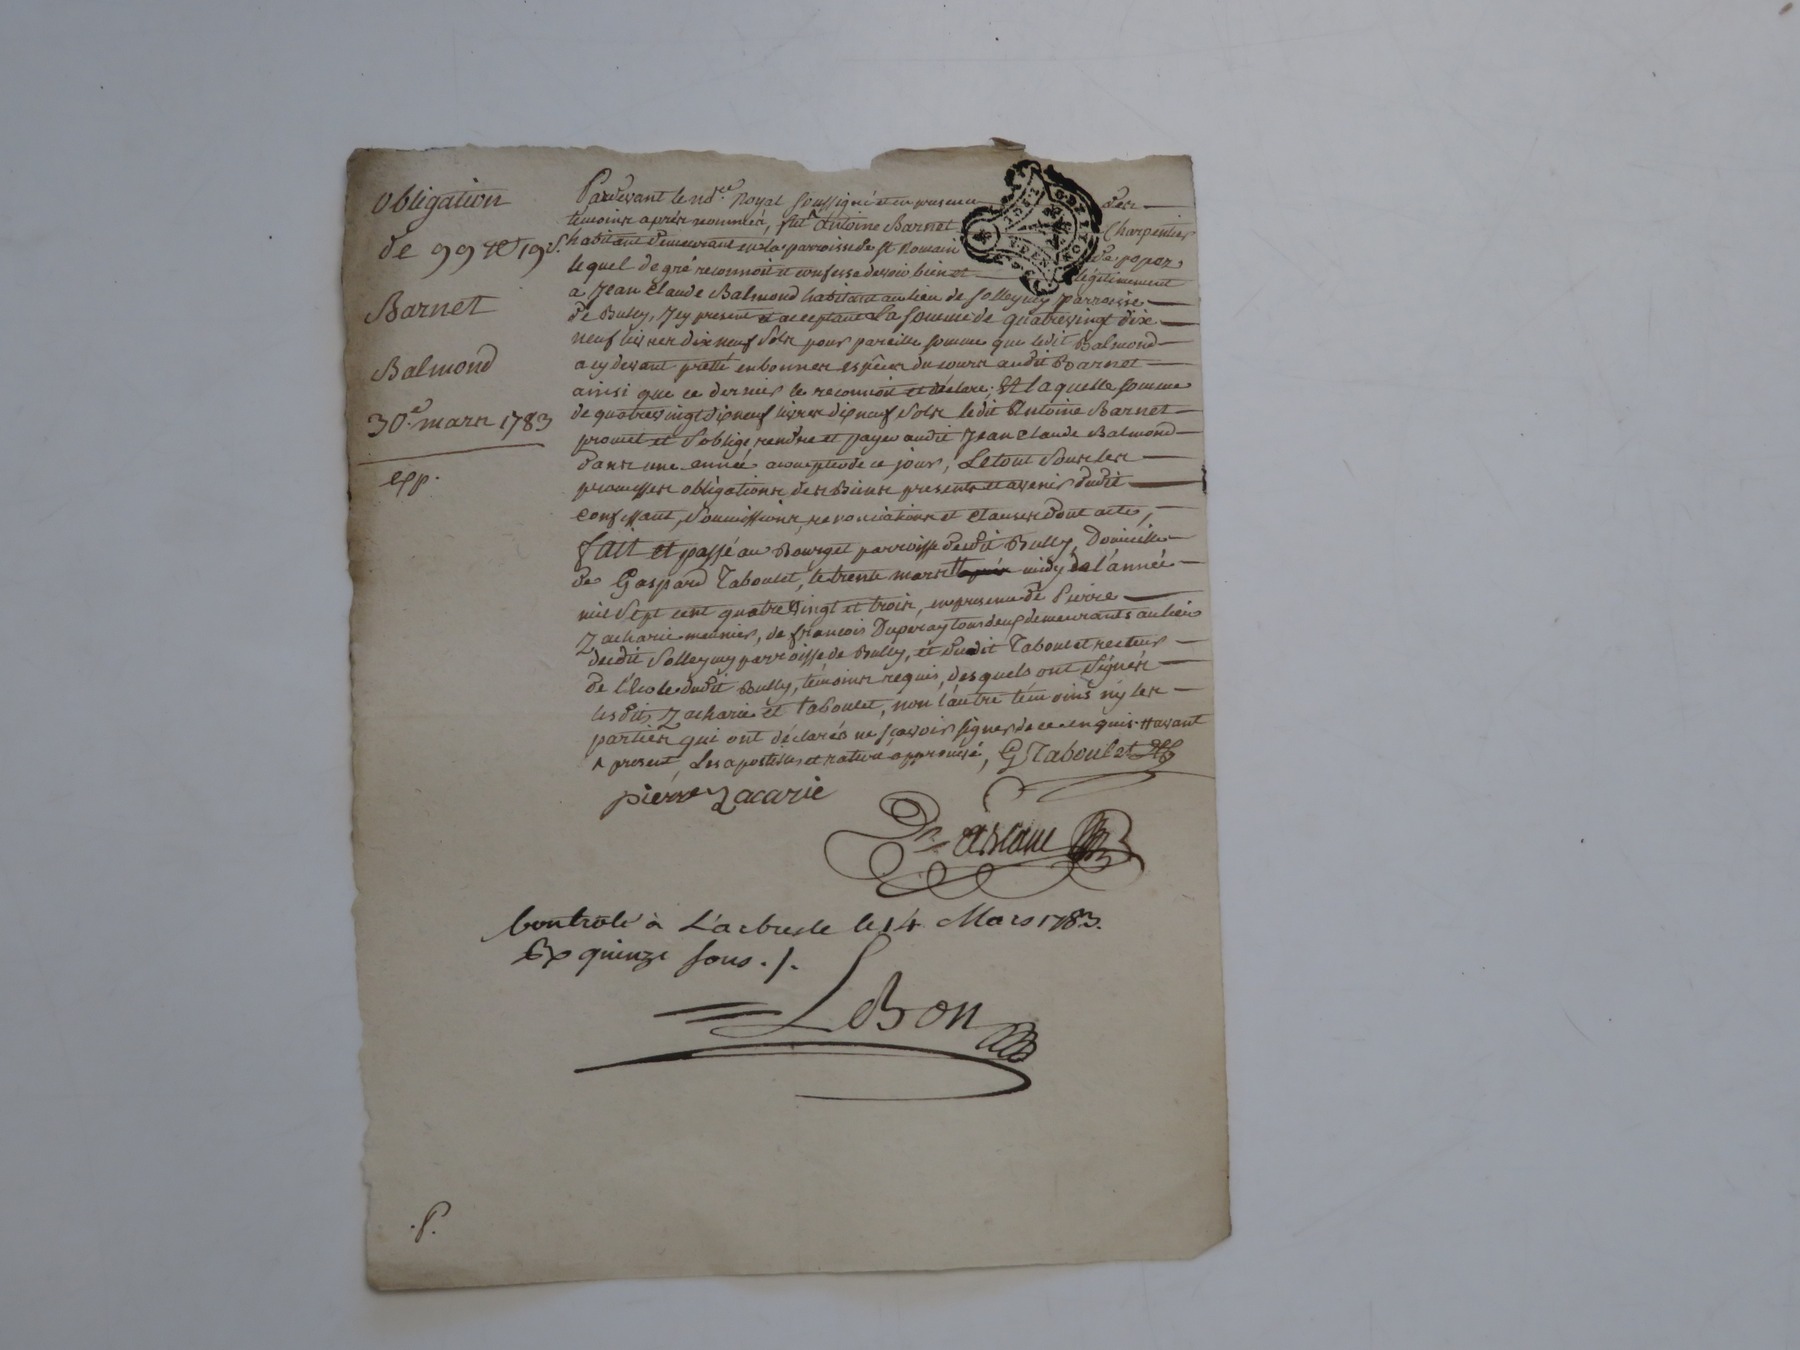 Obligation
de 99 ℔ 19 s.
Barnet
Balmond
30.e mars 1783
exp.
Pardevant le no.re Royal soussigné et en presence des
temoins après nommés, fut Antoine Barnet Charpentier
habitant demeurant en la parroisse de St Romain de popez
lequel de gré reconnoit et confesse devoir bien et légitimement
a Jean Claude Balmond habitant au lieu de Solleymy parroisse
de Bully, Icy present et acceptant la somme de quatrevingt dix
neuf livres dix neuf sols pour pareille somme que ledit Balmond
a cy devant pretté en bonnes espêces du cours audit Barnet
ainsi que ce dernier le reconnoit et déclare; Et laquelle somme
de quatrevingt dixneuf livres dixneuf sols ledit Antoine Barnet
promet et s'oblige, rendre et payer audit Jean Claude Balmond
dans une année acompter de ce jour, Le tout sous les
promesses obligations des Biens presents et avenir dudit
confessant, soumissions, renonciations et clauses dont acte,
fait et passé au Bourg et parroisse dudit Bully, Domicile
de Gaspard Taboulet, le trente mars midy de l'année
mil sept cent quatre vingt et trois, en presence de Pierre
Zacharie meunier, de françois Duperay tous deux demeurants au lieu
dudit Solleymy parroisse de Bully, et dudit Taboulet recteur
de l'Ecole dudit Bully, temoins requis, desquels ont signés
lesdits Zacharie et taboulet, non l'autre témoins ny les
parties qui ont déclarés ne sçavoir signer de ce enquis # avant
^ present, Les apostilles et rature approuvé, G Taboulet
pierre zacarie
Contrôlé à L'arbresle le 14 Mars 1783.
Rx quinze sous ./.
LeBon
.P.